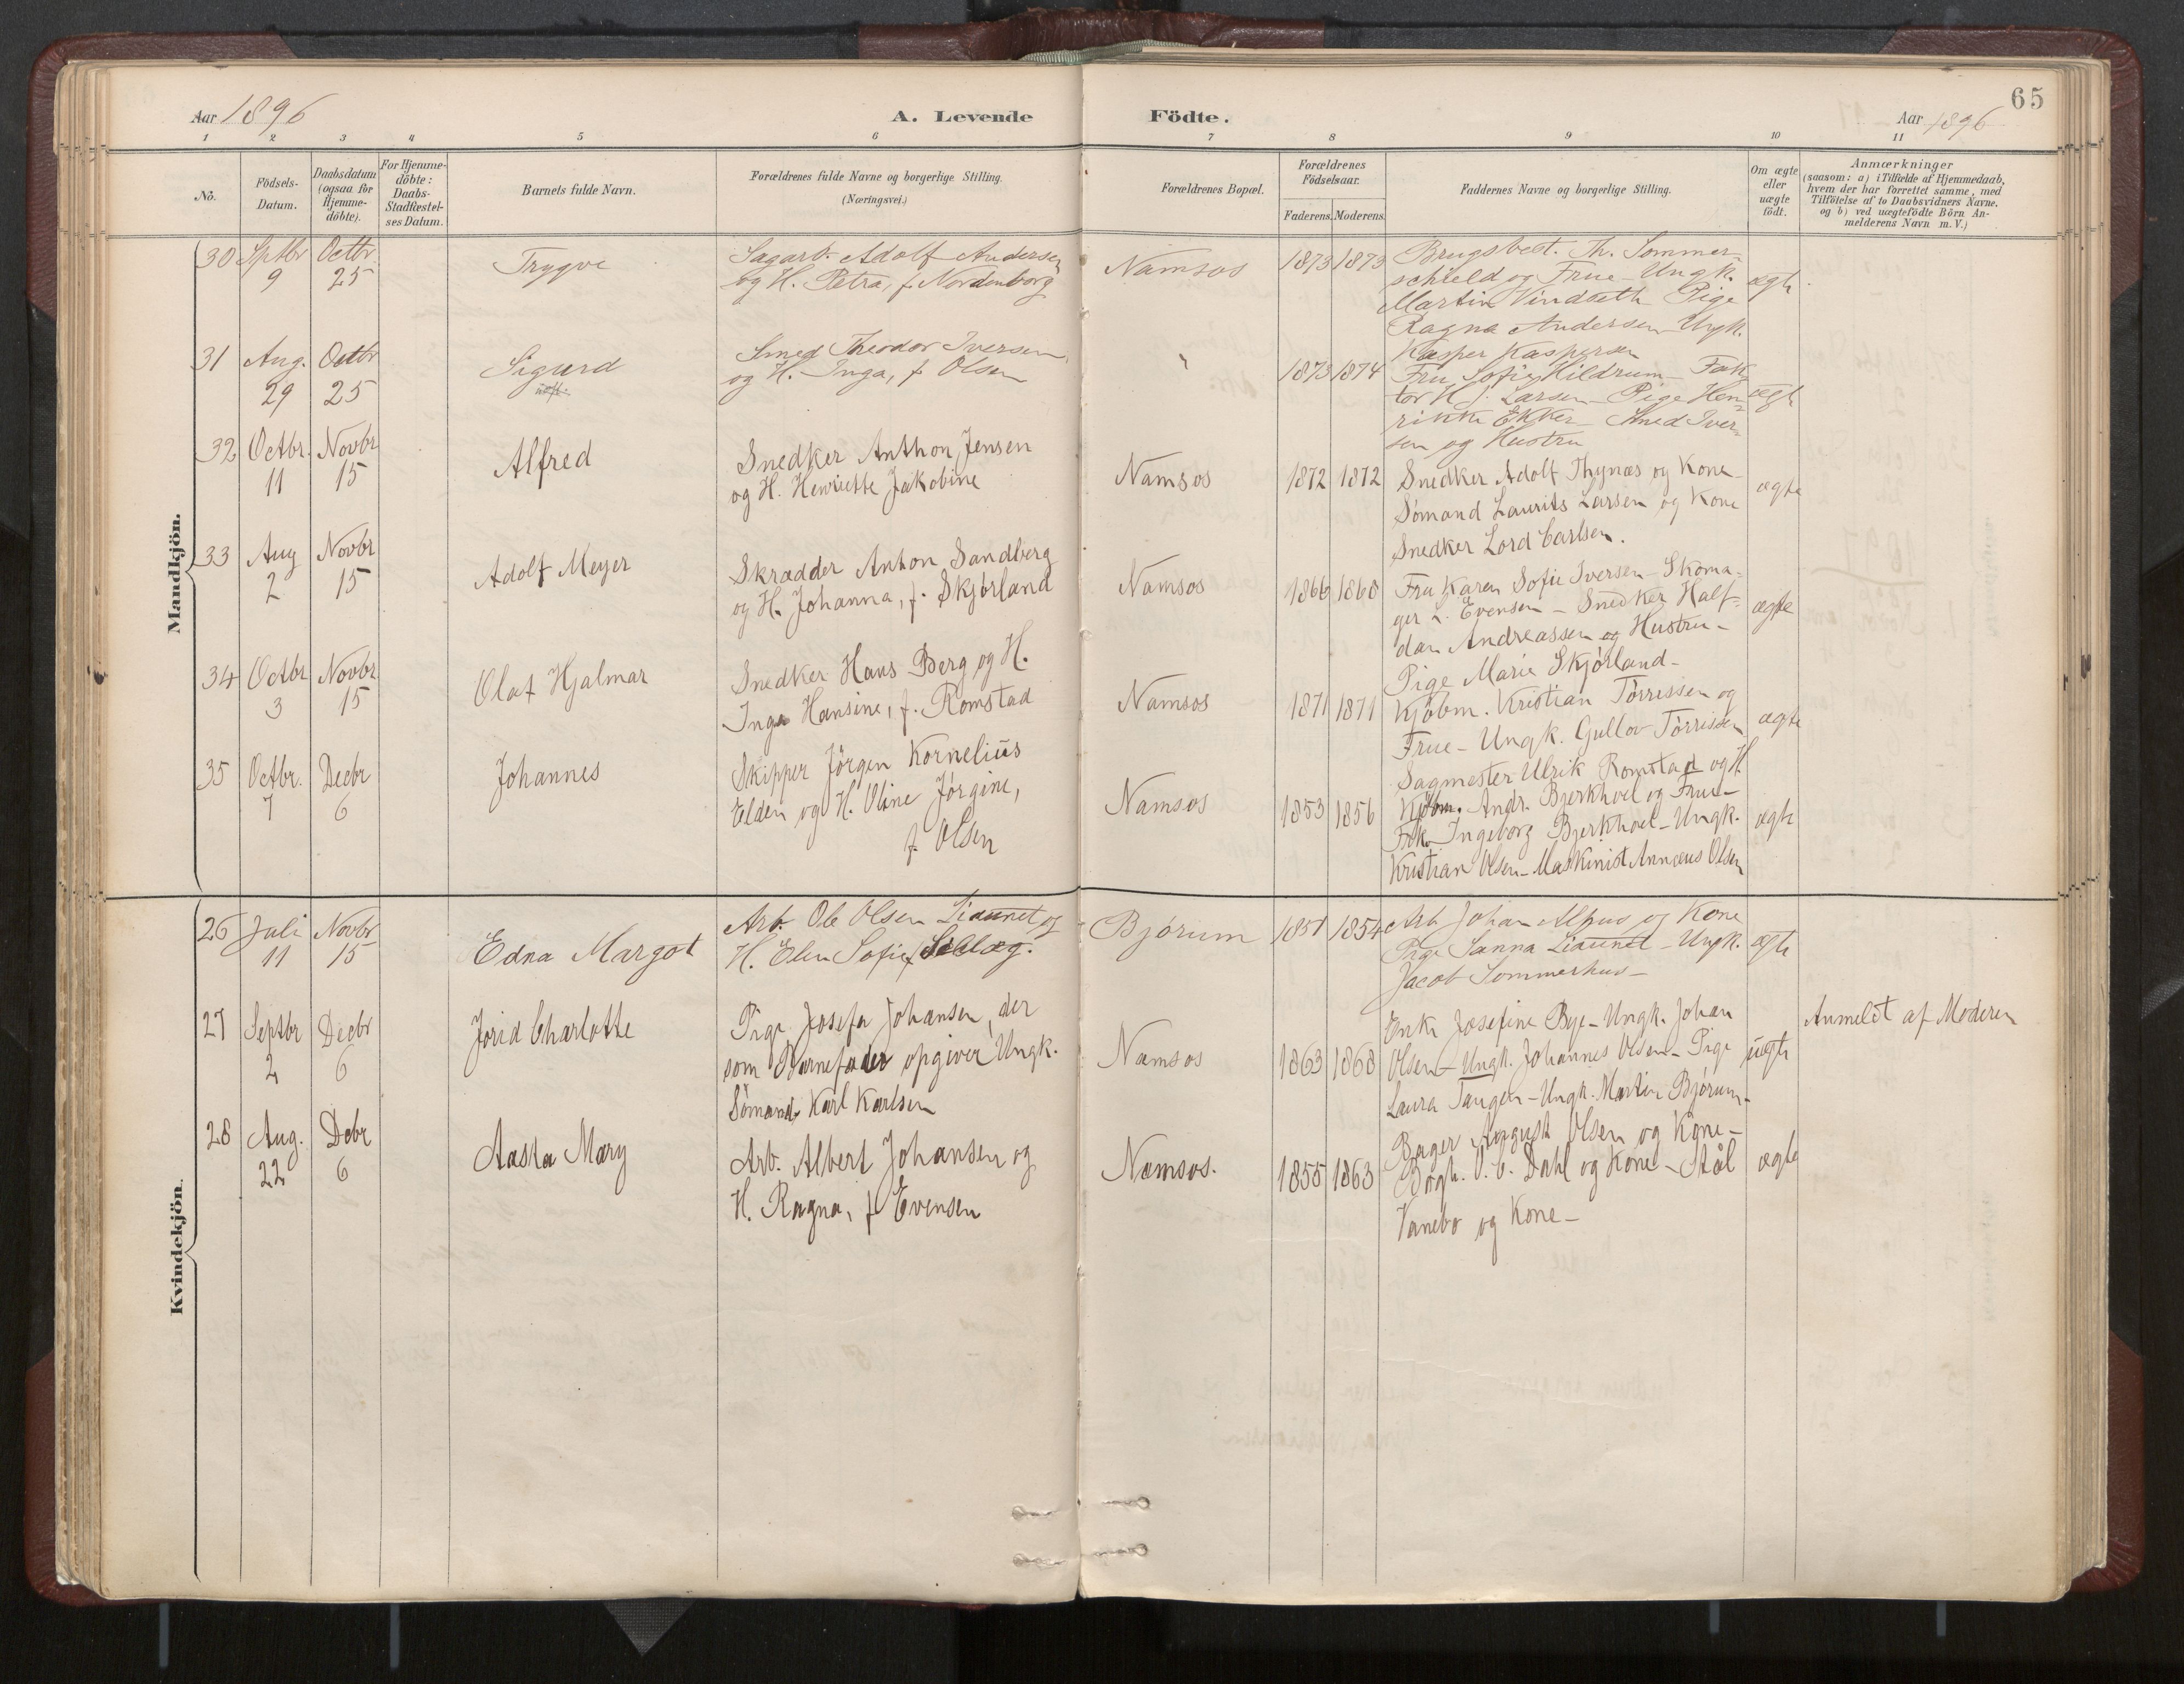 65
Aar 1896
A. Levende
Födte.
Aar 1896
1 2 3 4 5 6 7 8 9 10 11
No.
Födsels-
Datum.
Daabsdatum
(ogsaa for
Hjemme-
döbte).
For Hjemme-
döbte:
Daabs-
Stadfæstel-
ses Datum.
Barnets fulde Navn.
Forældrenes fulde Navne og borgerlige Stilling.
(Næringsvei.)
Forældrenes Bopæl.
Forældrenes
Födselsaar.
Faderens. Moderens.
Faddernes Navne og borgerlige Stilling.
Om ægte
eller
uægte
födt.
Anmærkninger
(saasom: a) i Tilfælde af Hjemmedaab,
hvem der har forrettet samme, med
Tilföielse af to Daabsvidners Navne,
og b) ved uægtefödte Börn An-
melderens Navn m. V.)
Mandkjön.
30 Septbr 9
Octbr 25
Trygve
Sagarb. Adolf Andersen
og H. Petra, f. Nordenborg
Namsos
1873 1873
Brugsbest. Th. Sommer-
schield og Frue - Ungk.
Martin Vindseth Pige
Ragna Andersen - Ungk.
Kasper Kaspersen
ægte
31 Aug. 29
Octbr 25
Sigurd
Smed Theodor Iversen
og H. Inga, f. Olsen
"
1873 1874
Fru Sofie Hildrum - Fak
tor H. J. Larsen - Pige Hen-
rikke Ekker - Smed Iver-
sen og Hustru
ægte
32 Octbr. 11
Novbr 15
Alfred
Snedker Anthon Jensen
og H. Henriette Jakobine
Namsos
1872 1872
Snedker Adolf Thynæs og Kone
Sømand Laurits Larsen og Kone
Snedker Lord Carlsen.
ægte
33 Aug 2
Novbr 15
Adolf Meyer
Skrædder Anton Sandberg
og H. Johanna, f. Skjørland
Namsos
1866 1868
Fru Karen Sofie Iversen - Skoma-
ger Evensen - Snedker Half-
dan Andreassen og Hustru -
Pige Marie Skjørland -
ægte
34 Octbr 3
Novbr 15
Olaf Hjalmar
Snedker Hans Berg og H.
Inga Hansine, f. Romstad
Namsos
1871 1871
Kjøbm. Kristian Tørrissen og
Frue - Ungk. Gullov Tørrissen
Sagmester Ulrik Romstad og H
ægte
35 Octbr. 7
Decbr 6
Johannes
Skipper Jörgen Kornelius
Elden og H. Oline Jörgine,
f. Olsen
Namsos
1853 1856
Kjøbm. Andr. Bjerkhoel og Frue -
Frk. Ingeborg Bjerkhoel - Ungk.
Kristian Olsen - Maskinist Annæus Olsen
ægte
Kvindekjön.
26 Juli 11
Novbr 15
Edna Margot
Arb. Ole Olsen Liaunet og
H. Elen Sofie f.
Bjørum
1851 1854
Arb Johan Alfnes og Kone
Pige Sanna Liaunet - Ungk.
Jacob Sommerhus -
ægte
27 Septbr 2
Decbr 6
Jorid Charlotte
Pige Josefa Johansen, der
som Barnefader opgiver Ungk.
Sömand Karl Karlsen
Namsos
1863 1868
Enke Josefine Bye - Ungk. Johan
Olsen - Ungk. Johannes Olsen - Pige
Laura Tangen - Ungk. Martin Bjørum -
uægte
Anmeldt af Moderen
28 Aug. 22
Debr 6
Aasta Mary
Arb. Albert Johansen og
H. Ragna, f Evensen
Namsos.
1855 1863
Bager August Olsen og Kone -
Bogh. O. C. Dahl og Kone - Stål
Vanebo og Kone -
ægte